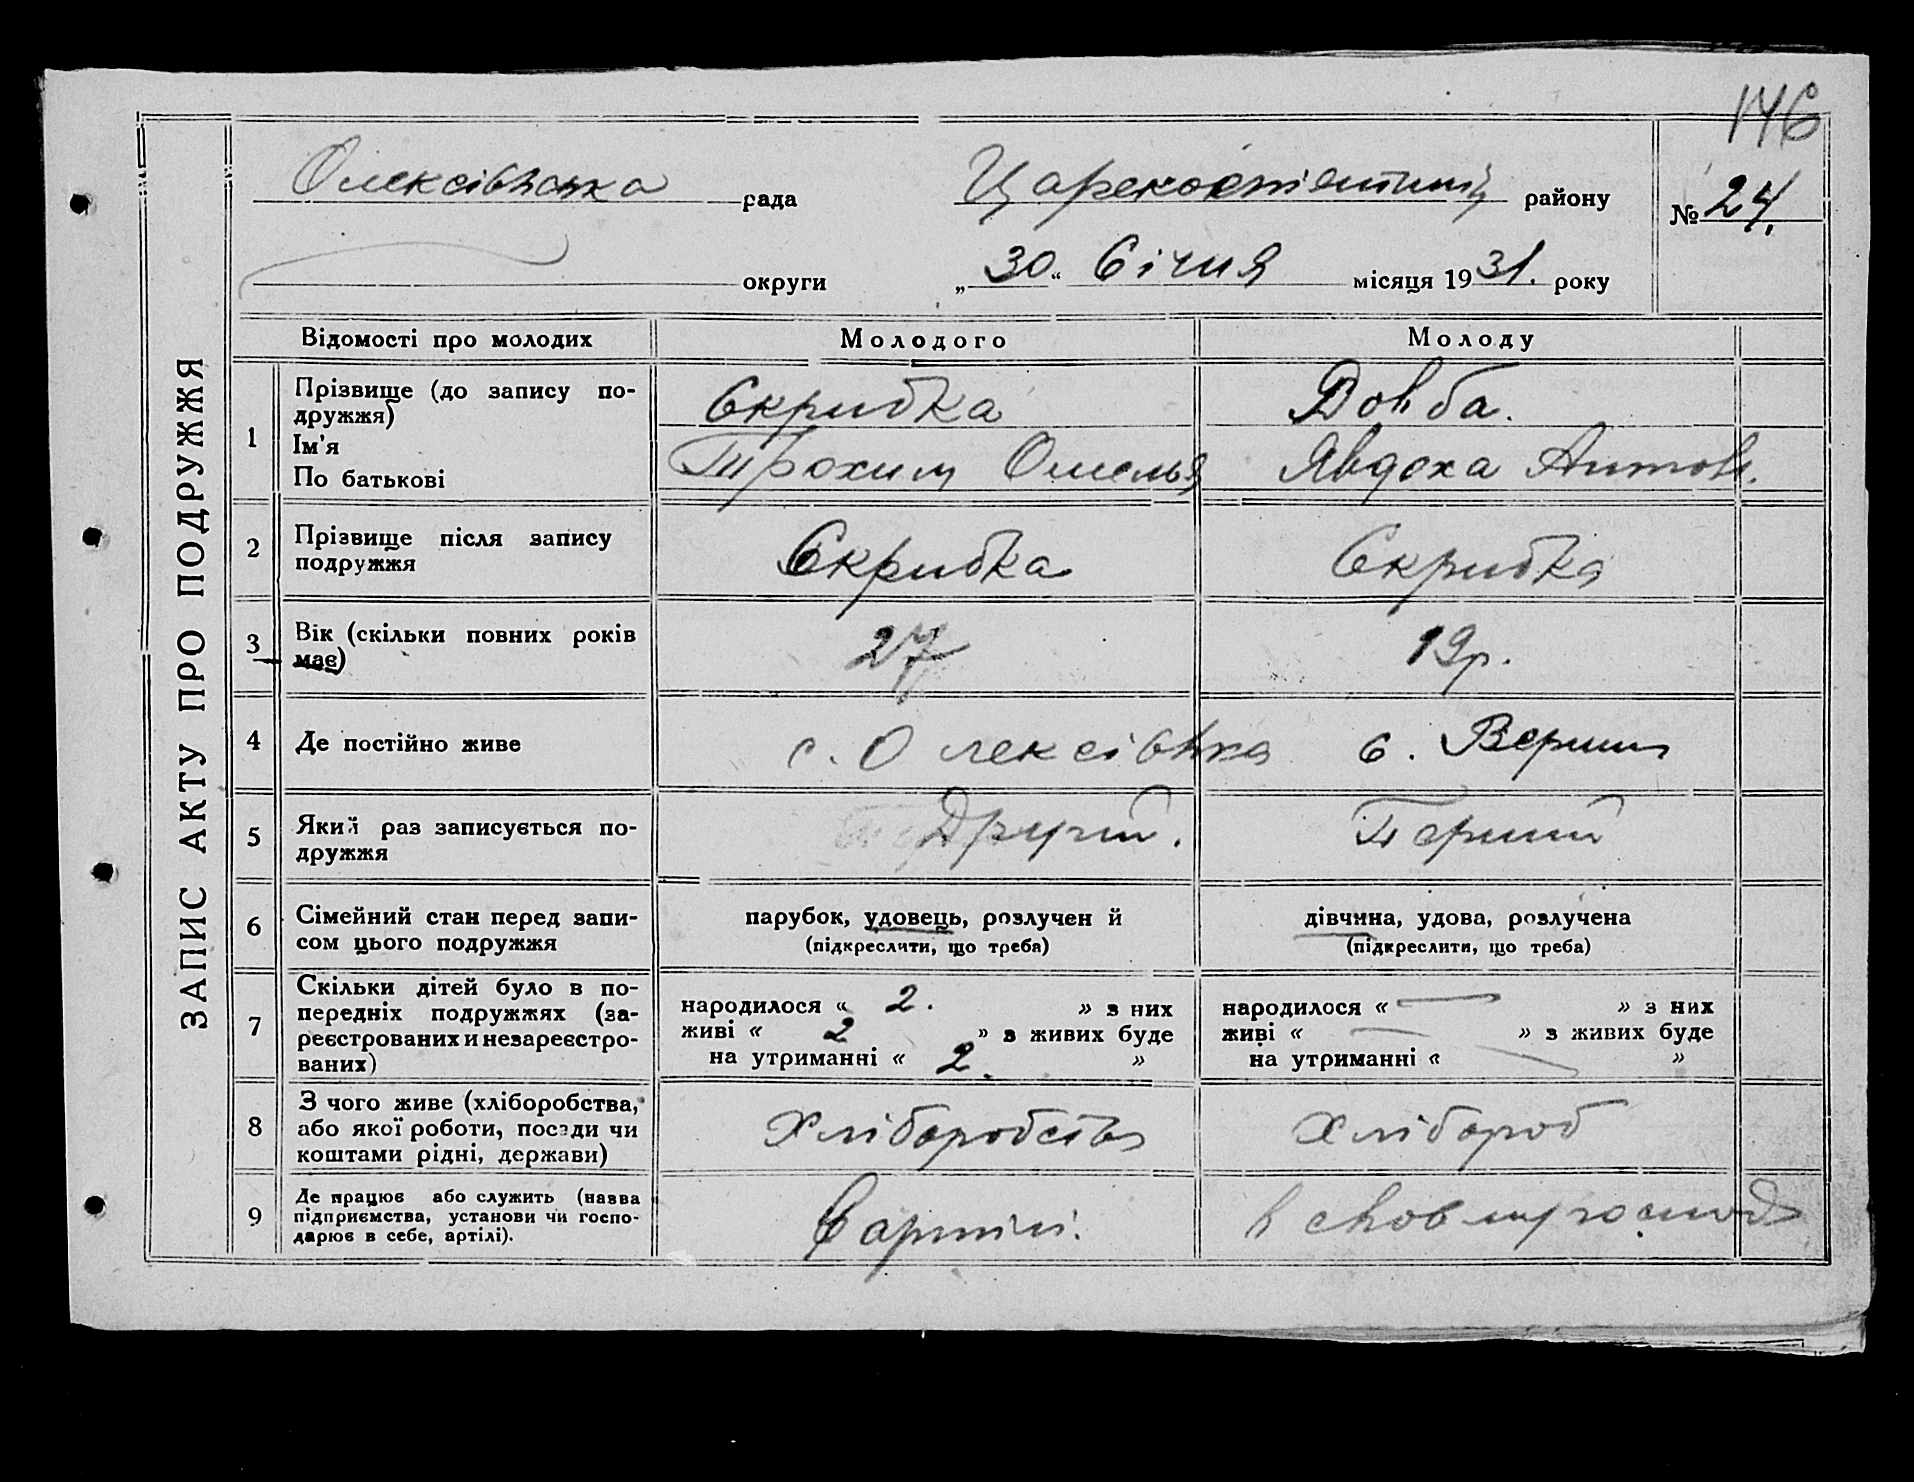 146
Олексівська рада
Царекостянтинів району
№ 24.
округи
„30“ Січня місяця 1931. року
ЗАПИС АКТУ ПРО ПОДРУЖЖЯ
Відомості про молодих Молодого Молоду
1 Прізвище (до запису по-
дружжя) Скрибка Довба.
Ім'я
По батькові Трохим Омелья Явдоха Антов.
2 Прізвище після запису
подружжя Скрибка Скрибка
3 Вік (скільки повних років
має) 27 19р.
4 Де постійно живе с. Олексівка с. Верши
5 Який раз записується по-
дружжя Другий. Перший
6 Сімейний стан перед запи-
сом цього подружжя
парубок, удовець, розлучен й
(підкреслити, що треба)
дівчина, удова, розлучена
(підкреслити, що треба)
7 Скільки дітей було в по-
передніх подружжях (за-
реєстрованих и незареєстро-
ваних)
народилося « 2. » з них
живі « 2 » з живих буде
на утриманні « 2. »
народилося « — » з них
живі « — » з живих буде
на утриманні « — »
8 З чого живе (хліборобства,
або якої роботи, посади чи
коштами рідні, держави)
Хліборобств Хлібороб
9 Де працює або служить (назва
підприємства, установи чи госпо-
дарює в себе, артілі).
В артілі. в своєму господ